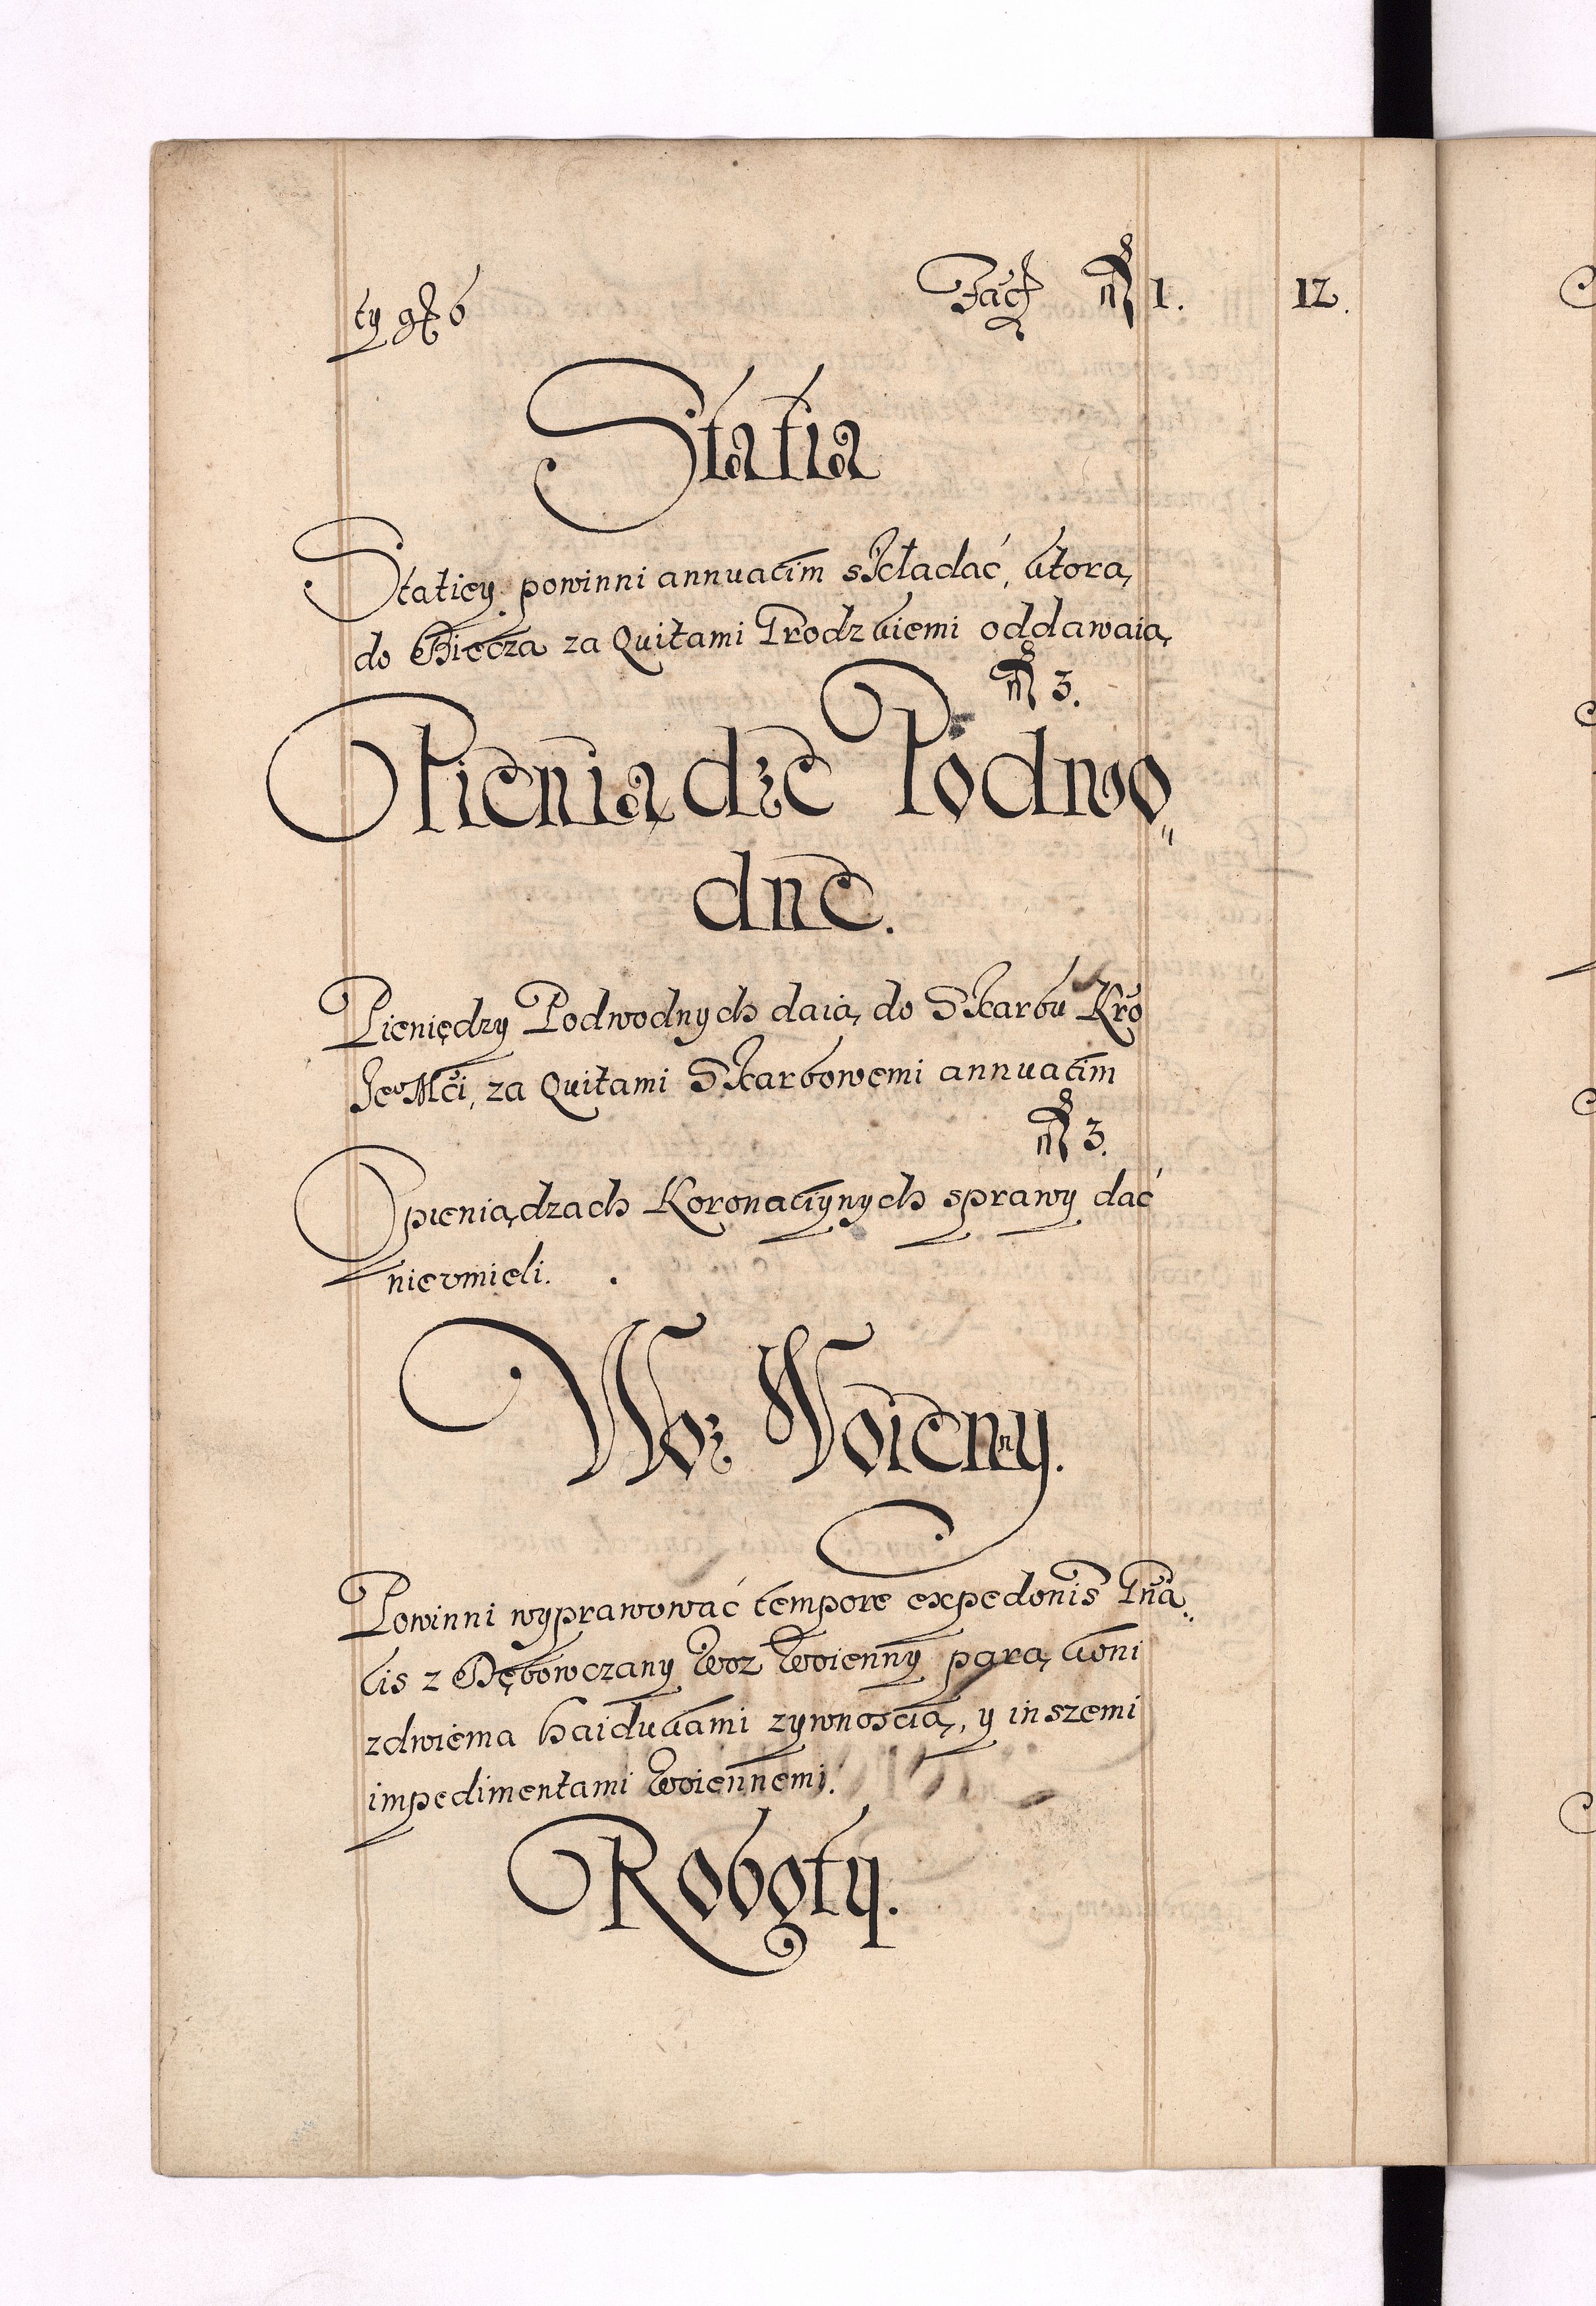 ty gr 6 Facit 1. 12.
Statia
Staticy powinni annuatim składać, ktorą
do Biecza za Quitami Grodzkiemi oddawaią
3.
Pieniądze Podwo„
dne.
Pieniędzy Podwodnych daią do Skarbu Kro
JeoMci, za Quitami Skarbowemi annuatim
3.
O pieniądzach Koronaciynych sprawy dać
nieumieli.
Woz Woienny.
Powinni wyprawować tempore expedonis Gna„
lis z Dębowczany Woz Woienny parą koni
zdwiema haidukami zywnoscią, y inszemi
impedimentami Woiennemi.
Roboty.